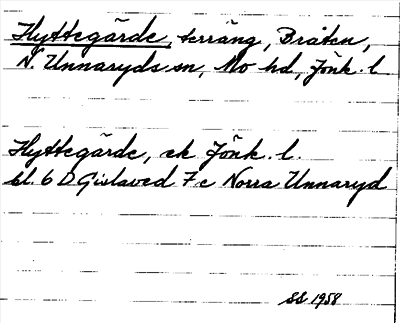 Flyttegärde, terräng, Bråten,
N. Unnaryds sn, Mo hd, Jönk. l.
Flyttegärde, ek Jönk. l.
bl. 6 D Gislaved 7 c Norra Unnaryd
SS 1958